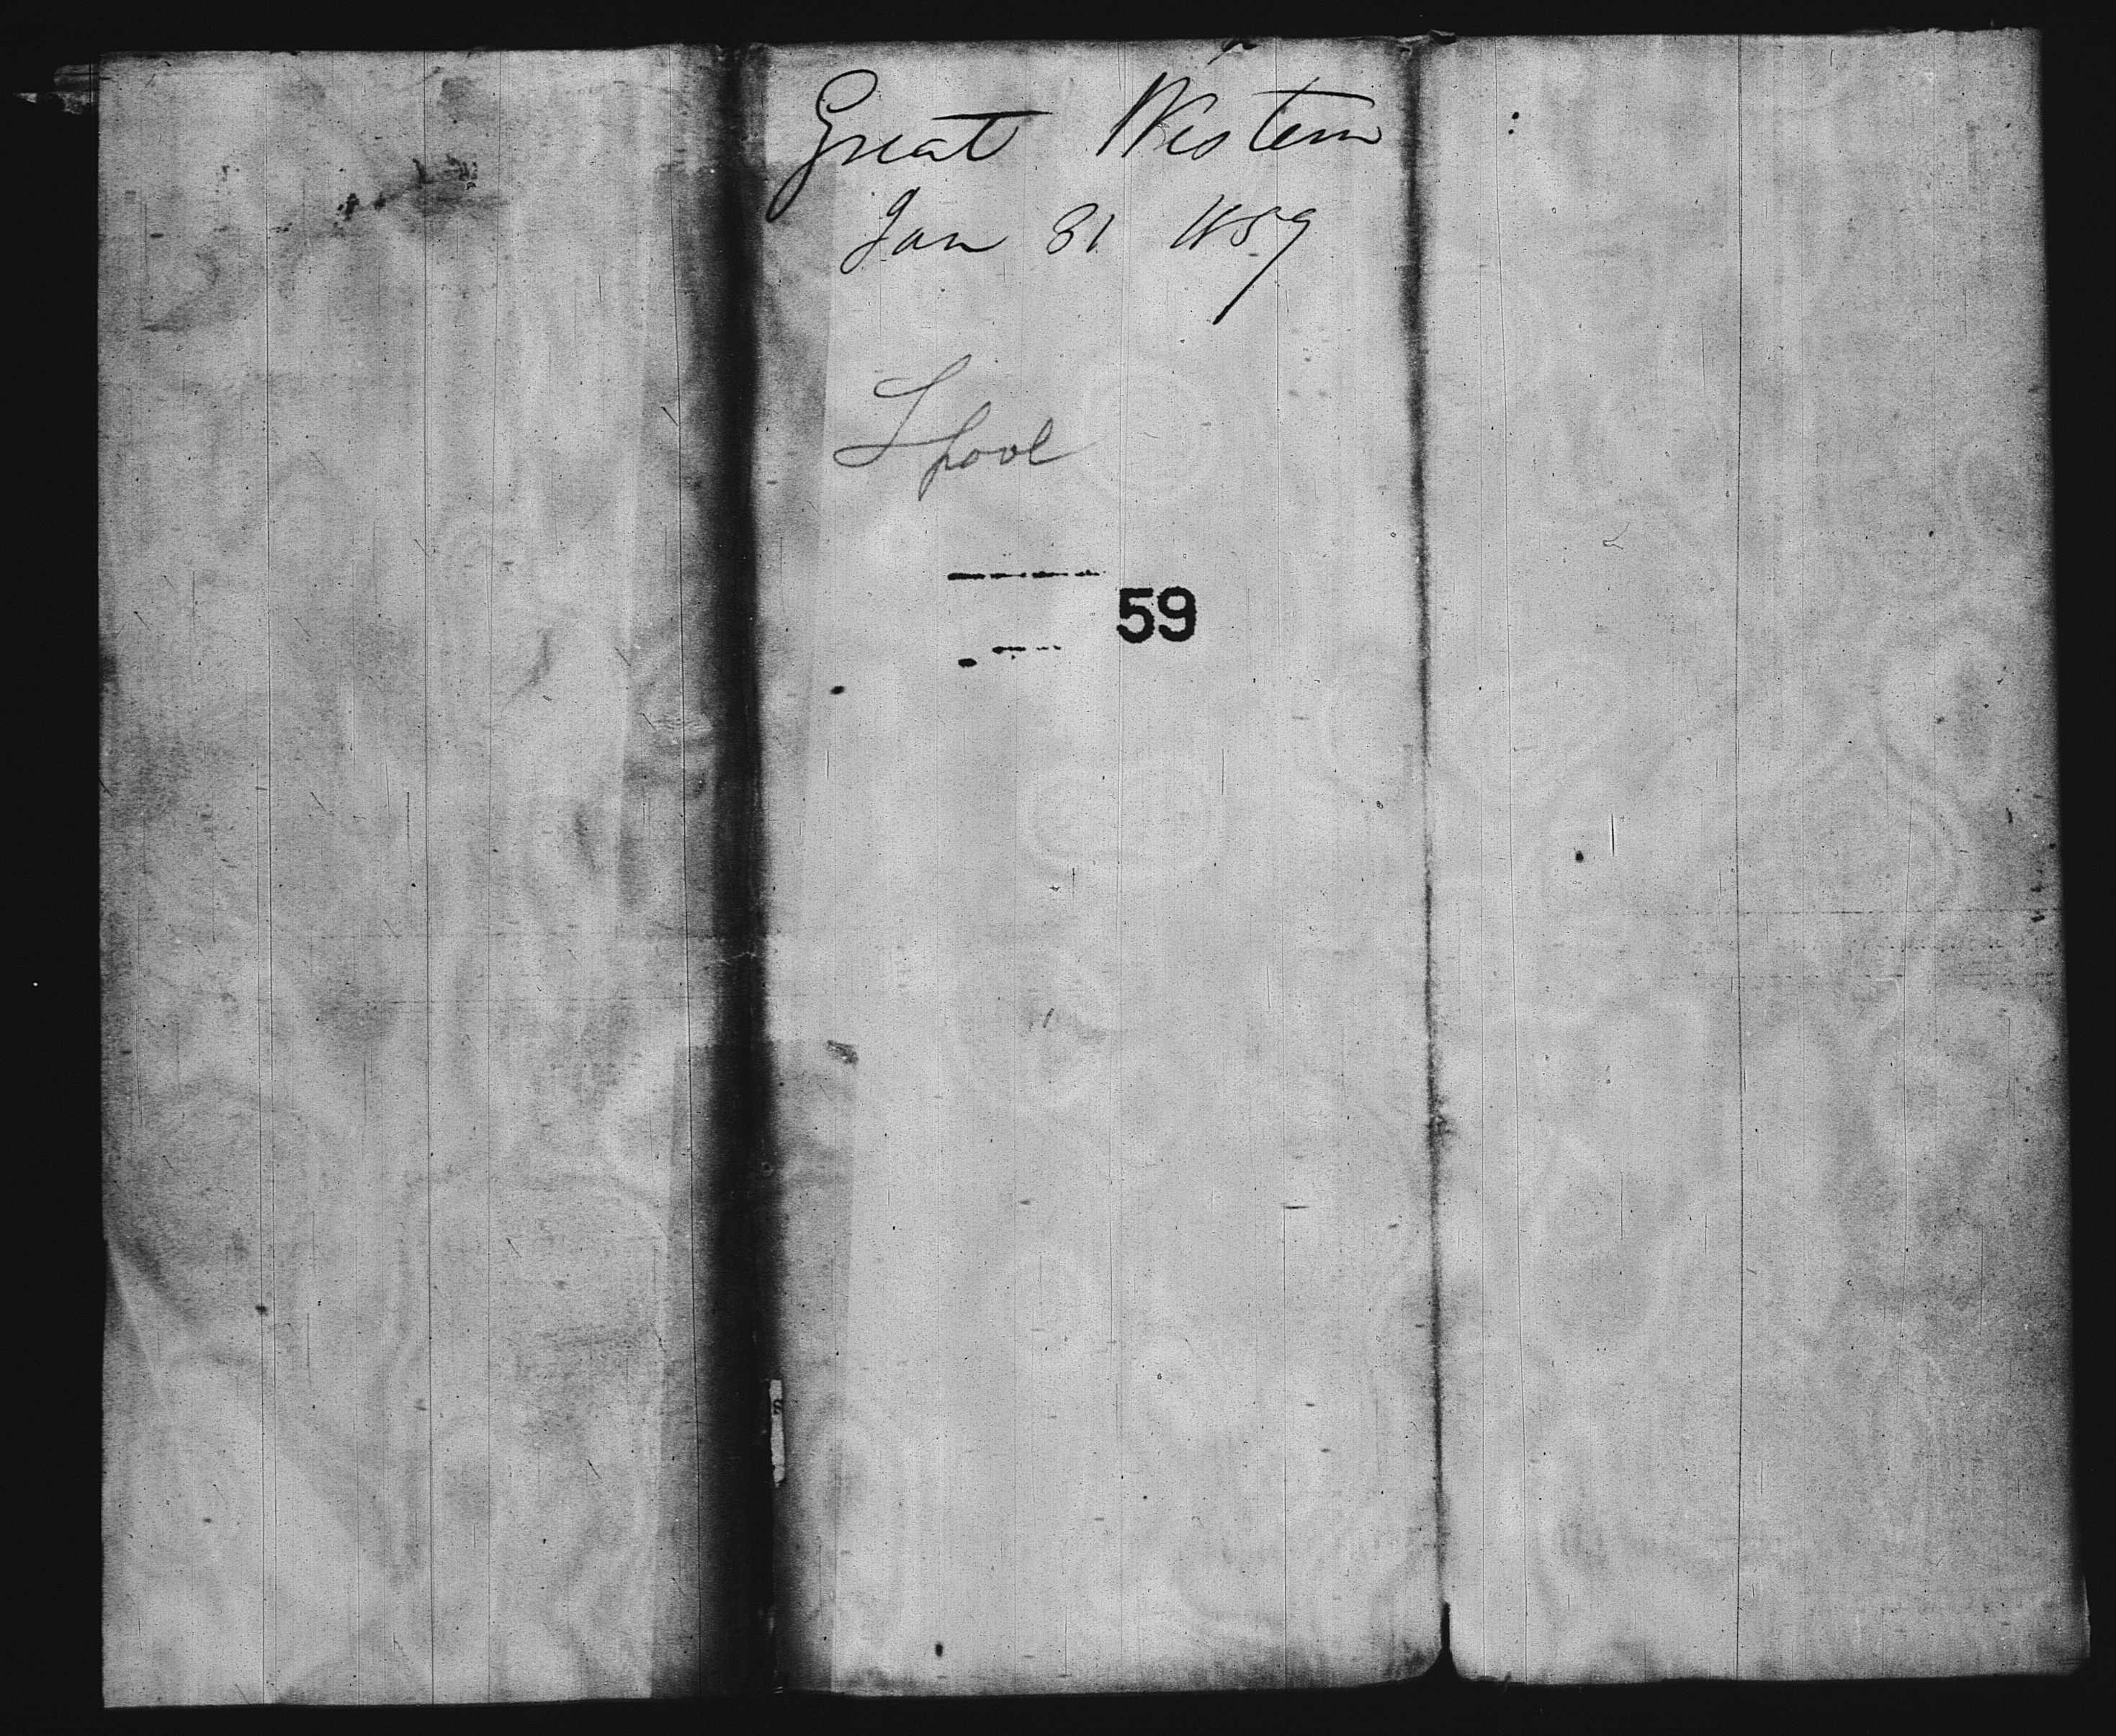 Great Western
Jan 31 1859
Lpool
59